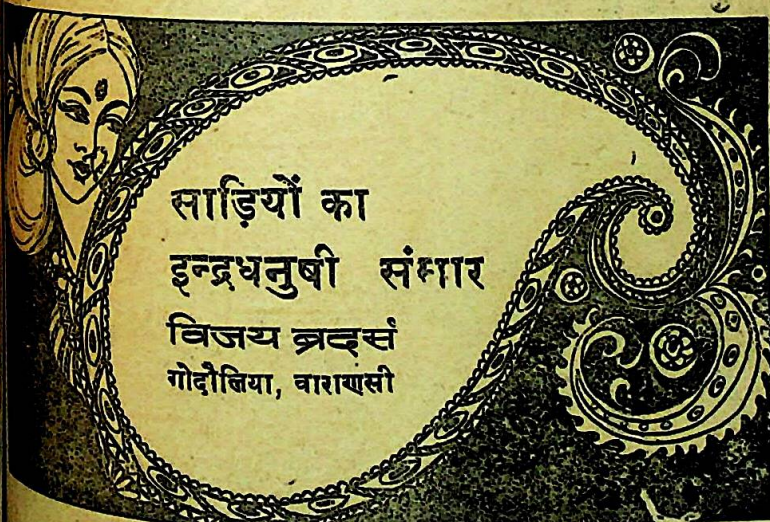 साड़ियों का
इन्द्रधनुषी संसार
विजय ब्रदर्स
गोदौलिया, वाराणसी